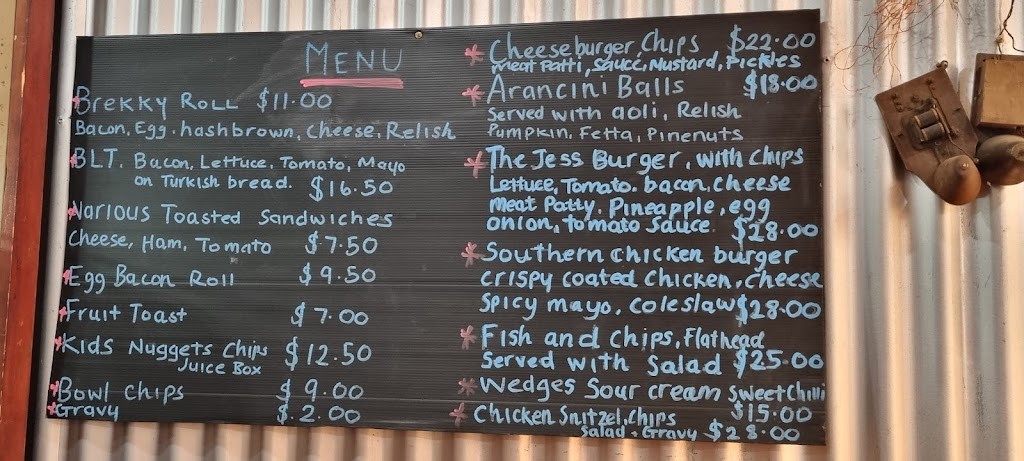 MENU
*Brekky Roll $11.00
Bacon, Egg. hashbrown, Cheese, Relish
*BLT. Bacon, Lettuce, Tomato, Mayo
on Turkish bread. $16.50
*Various Toasted Sandwiches
Cheese, Ham, Tomato $7.50
*Egg Bacon Roll $9.50
*Fruit Toast $7.00
*Kids Nuggets Chips $12.50
Juice Box
*Bowl Chips $9.00
*Gravy $2.00
*Cheeseburger, Chips $22.00
Meat Patti, Sauce, Mustard, Pickles
*Arancini Balls $18.00
Served with aoli, Relish
Pumpkin, Fetta, Pinenuts
*The Jess Burger, with Chips
Lettuce, Tomato. bacon, cheese
Meat Patty, Pineapple, egg
onion, tomato sauce $28.00
*Southern chicken burger
crispy coated Chicken, cheese
Spicy mayo, coleslaw $28.00
*Fish and Chips, Flathead
Served with Salad $25.00
*Wedges Sour cream Sweet Chilli
$15.00
*Chicken Snitzel, Chips
Salad + Gravy $28.00